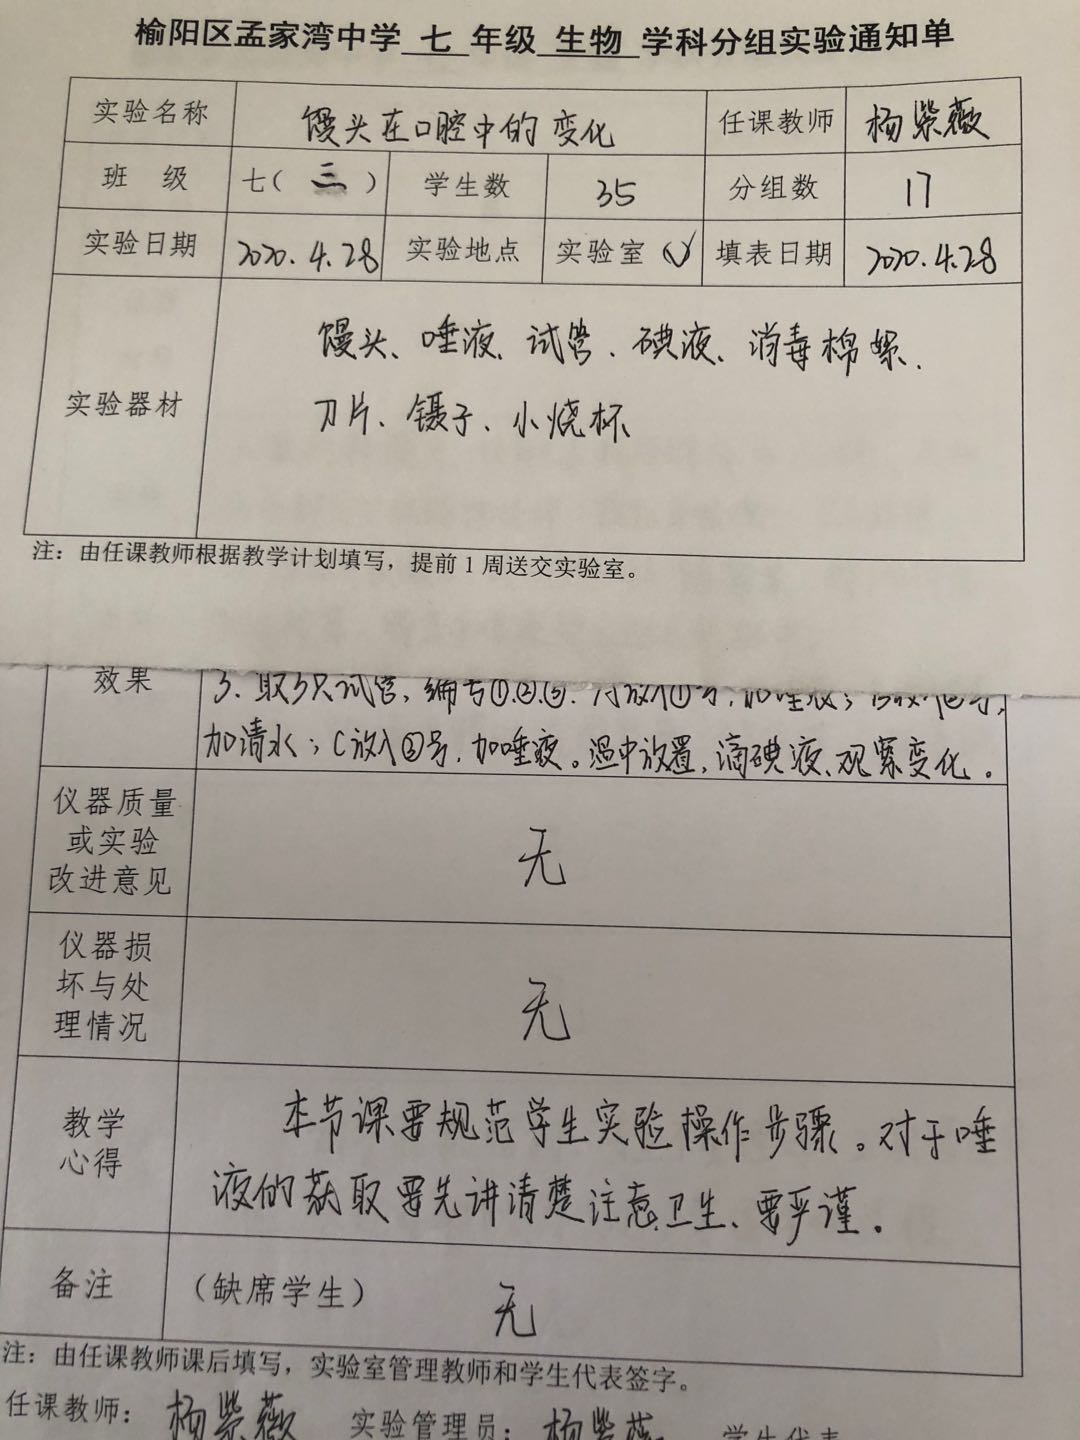 榆阳区孟家湾中学 七 年级 生物 学科分组实验通知单
实验名称 馒头在口腔中的变化 任课教师 杨紫薇
班 级 七( 三 ) 学生数 35 分组数 17
实验日期 2020.4.28 实验地点 实验室(√) 填表日期 2020.4.28
实验器材
馒头、唾液、试管、碘液、消毒棉絮、
刀片、镊子、小烧杯
注：由任课教师根据教学计划填写，提前1周送交实验室。
效果
3. 取3只试管，编号①.②.③. 放入①号，加唾液；
加清水；C放入③号，加唾液。温中放置，滴碘液、观察变化。
仪器质量
或实验
改进意见
无
仪器损
坏与处
理情况
无
教学
心得
本节课要规范学生实验操作步骤。对于唾
液的获取要先讲清楚注意卫生、要严谨。
备注 (缺席学生) 无
注：由任课教师课后填写，实验室管理教师和学生代表签字。
任课教师： 杨紫薇 实验管理员： 杨紫薇 学生代表